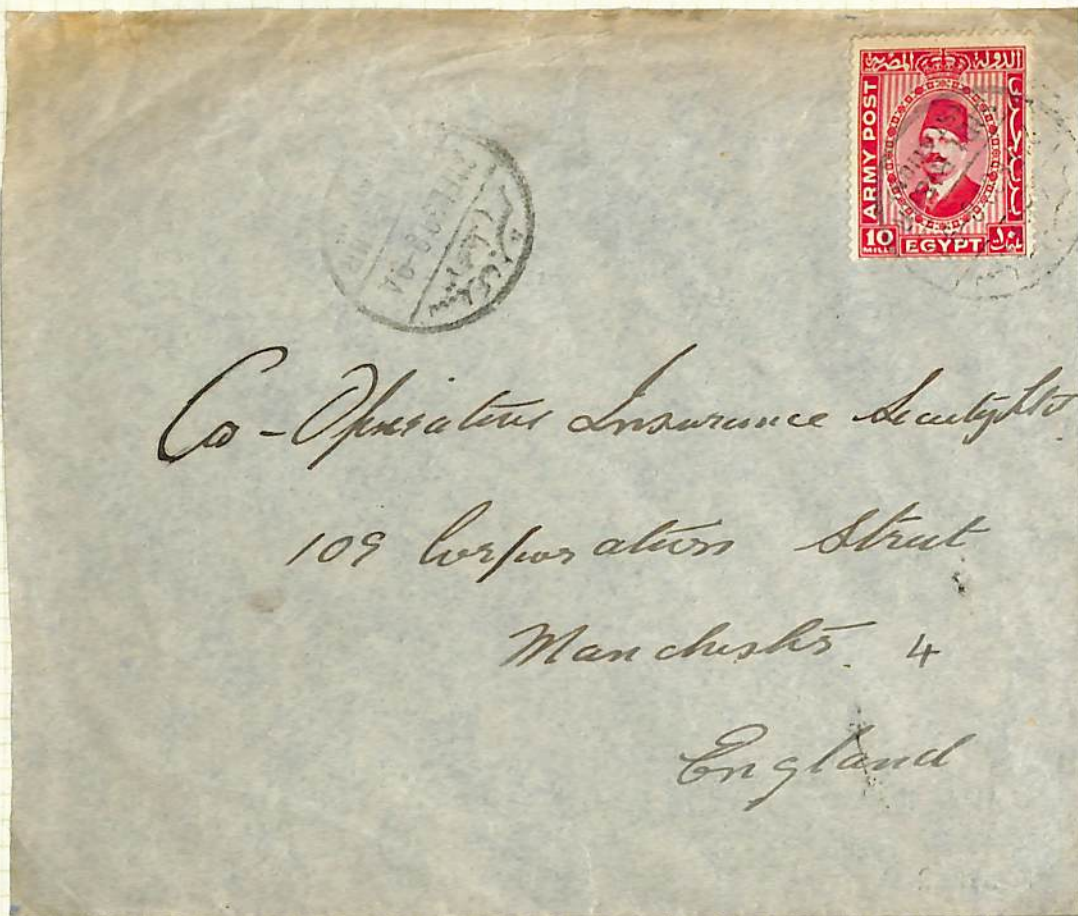 الدولة المصرية
ARMY POST
10
MILLS
EGYPT
Co-Operative Insurance Society Ltd
109 Corporation Street
Manchester 4
England